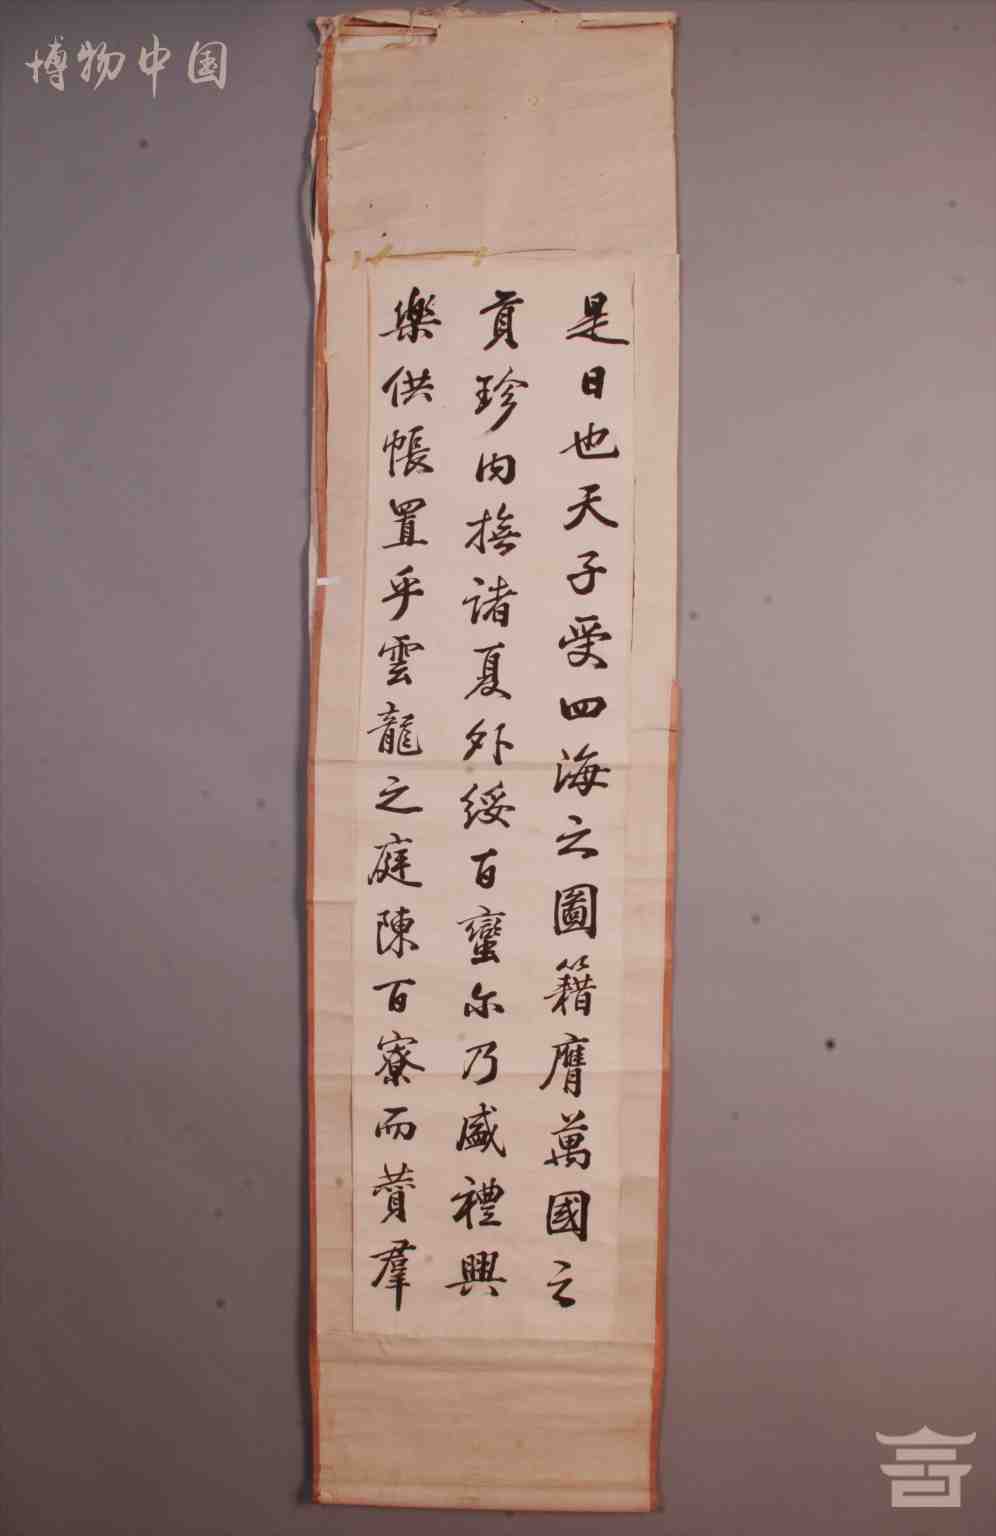 博物中国
是日也天子受四海之圖籍膺萬國之
貢珍内撫諸夏外綏百蠻尔乃盛禮興
樂供帳置乎雲龍之庭陳百寮而贊羣